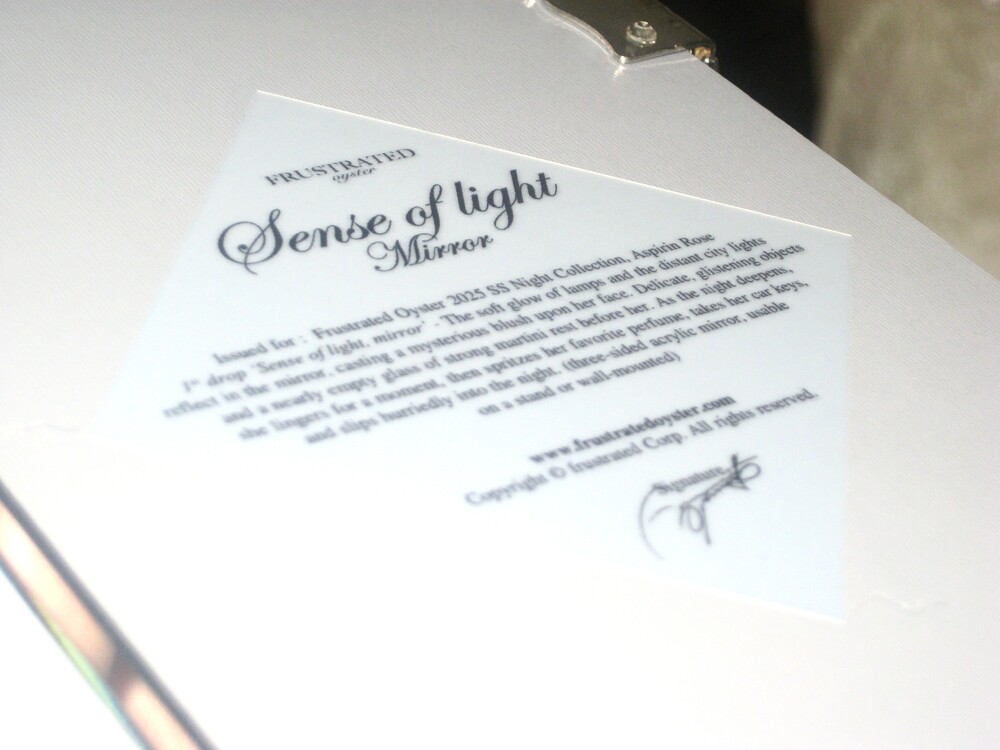 FRUSTRATED
oyster
Sense of light
Mirror
Issued for : Frustrated Oyster 2025 SS Night Collection, Aspirin Rose
1st drop "Sense of light, mirror" - The soft glow of lamps and the distant city lights
reflect in the mirror, casting a mysterious blush upon her face. Delicate, glistening objects
and a nearly empty glass of strong martini rest before her. As the night deepens,
she lingers for a moment, then spritzes her favorite perfume, takes her car keys,
and slips hurriedly into the night. (three-sided acrylic mirror, usable
on a stand or wall-mounted)
www.frustratedoyster.com
Copyright © frustrated Corp. All rights reserved.
Signature